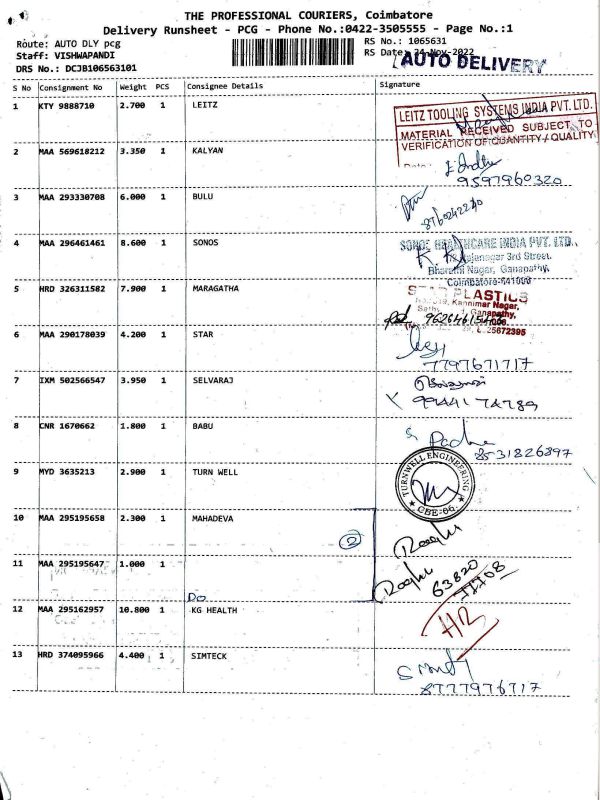 THE PROFESSIONAL COURIERS, Coimbatore
Delivery Runsheet - PCG - Phone No.:0422-3505555 - Page No.:1
Route: AUTO DLY pcg
Staff: VISHWAPANDI
DRS No.: DCJB106563101
RS No.: 1065631
RS Date: 24-Nov-2022
AUTO DELIVERY
S No Consignment No Weight PCS Consignee Details Signature
1 KTY 9888710 2.700 1 LEITZ
LEITZ TOOLING SYSTEMS INDIA PVT. LTD.
MATERIAL RECEIVED SUBJECT TO
VERIFICATION OF QUANTITY / QUALITY
2 MAA 569618212 3.350 1 KALYAN
9597960320
3 MAA 293330708 6.000 1 BULU
4 MAA 296461461 8.600 1 SONOS
HEALTHCARE INDIA PVT. LTD.
3rd Street.
Bharathi Nagar, Ganapathy,
Coimbatore-641006
5 HRD 326311582 7.900 1 MARAGATHA
STAR PLASTICS
Kannimar Nagar,
Ganapathy,
6 MAA 290178039 4.200 1 STAR
7797671717
7 IXM 502566547 3.950 1 SELVARAJ
9944174789
8 CNR 1670662 1.800 1 BABU
8531826897
9 MYD 3635213 2.900 1 TURN WELL
TURNWELL ENGINEERING
CBE-06.
10 MAA 295195658 2.300 1 MAHADEVA
2
Raghu
11 MAA 295195647 1.000 1
Do
Raghu
63820
12 MAA 295162957 10.800 1 KG HEALTH
HR
13 HRD 374095966 4.400 1 SIMTECK
8777976717